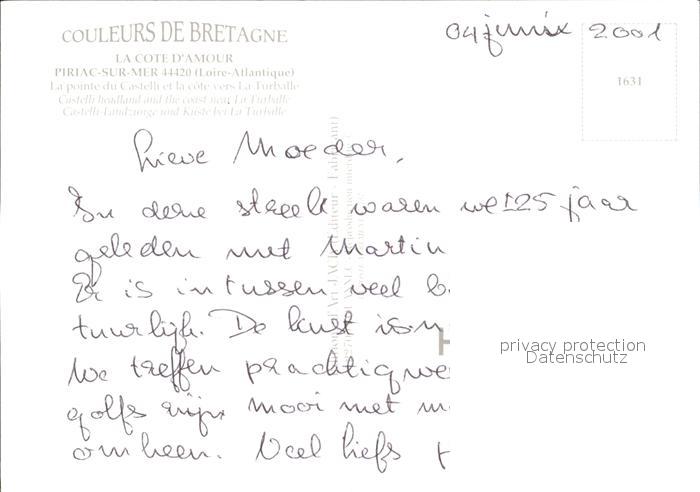 COULEURS DE BRETAGNE
04 juni 2001
LA COTE D'AMOUR
PIRIAC-SUR-MER 44420 (Loire-Atlantique)
La pointe du Castelli et la côte vers La Turballe
Castelli headland and the coast near La Turballe
Castelli-Landzunge und Küste bei La Turballe
1631
Lieve Moeder,
In deze streek waren we ±25 jaar
geleden met Martin
Er is intussen veel b
tuurlijk. De kust is
We treffen prachtig we
golfs zijn mooi met m
omheen. Veel liefs
privacy protection
Datenschutz